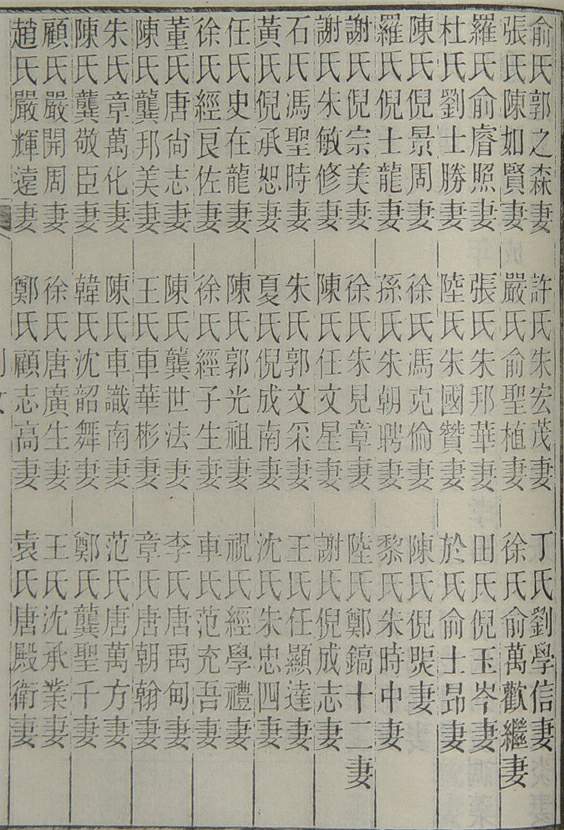 俞氏郭之森妻 許氏朱宏茂妻 丁氏劉學信妻
張氏陳如賢妻 嚴氏俞聖植妻 徐氏俞萬歡繼妻
羅氏俞睿照妻 張氏朱邦華妻 田氏倪玉岑妻
杜氏劉士勝妻 陸氏朱國贊妻 於氏俞士昂妻
陳氏倪景周妻 徐氏馮克倫妻 陳氏倪煚妻
羅氏倪士龍妻 孫氏朱朝聘妻 黎氏朱時中妻
謝氏倪宗美妻 徐氏朱見章妻 陸氏鄭鎬十二妻
謝氏朱敏修妻 陳氏任文星妻 謝氏倪成志妻
石氏馮聖時妻 朱氏郭文采妻 王氏任顯達妻
黃氏倪承恕妻 夏氏倪成南妻 沈氏朱忠四妻
任氏史在龍妻 陳氏郭光祖妻 祝氏經學禮妻
徐氏經良佐妻 徐氏經子生妻 車氏范充吾妻
董氏唐尙志妻 陳氏龔世法妻 李氏唐禹甸妻
陳氏龔邦美妻 王氏車華彬妻 章氏唐朝翰妻
朱氏章萬化妻 陳氏車識南妻 范氏唐萬方妻
陳氏龔敬臣妻 韓氏沈韶舞妻 鄭氏龔聖千妻
顧氏嚴開周妻 徐氏唐廣生妻 王氏沈承業妻
趙氏嚴輝遠妻 鄭氏顧志高妻 袁氏唐殿衛妻